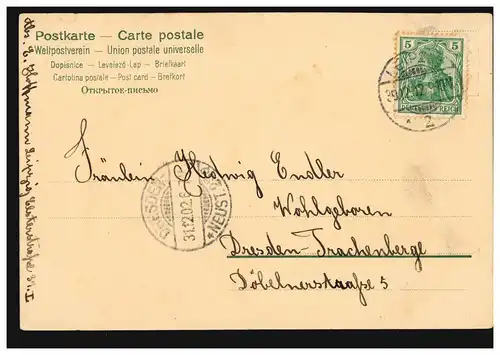 Postkarte — Carte postale
Weltpostverein — Union postale universelle
Dopisnice — Levelező-Lap — Briefkaart
Cartolina postale — Post card — Brefkort
Открытое-письмо
5 5
REICH
2
Fräulein Hedwig Endler
Wohlgeboren
Dresden-Trachenberge
Döbelnerstraße 5
DRESDEN
31.12.02.
*NEUST.
Hoffmann Leipzig Elsterstraße